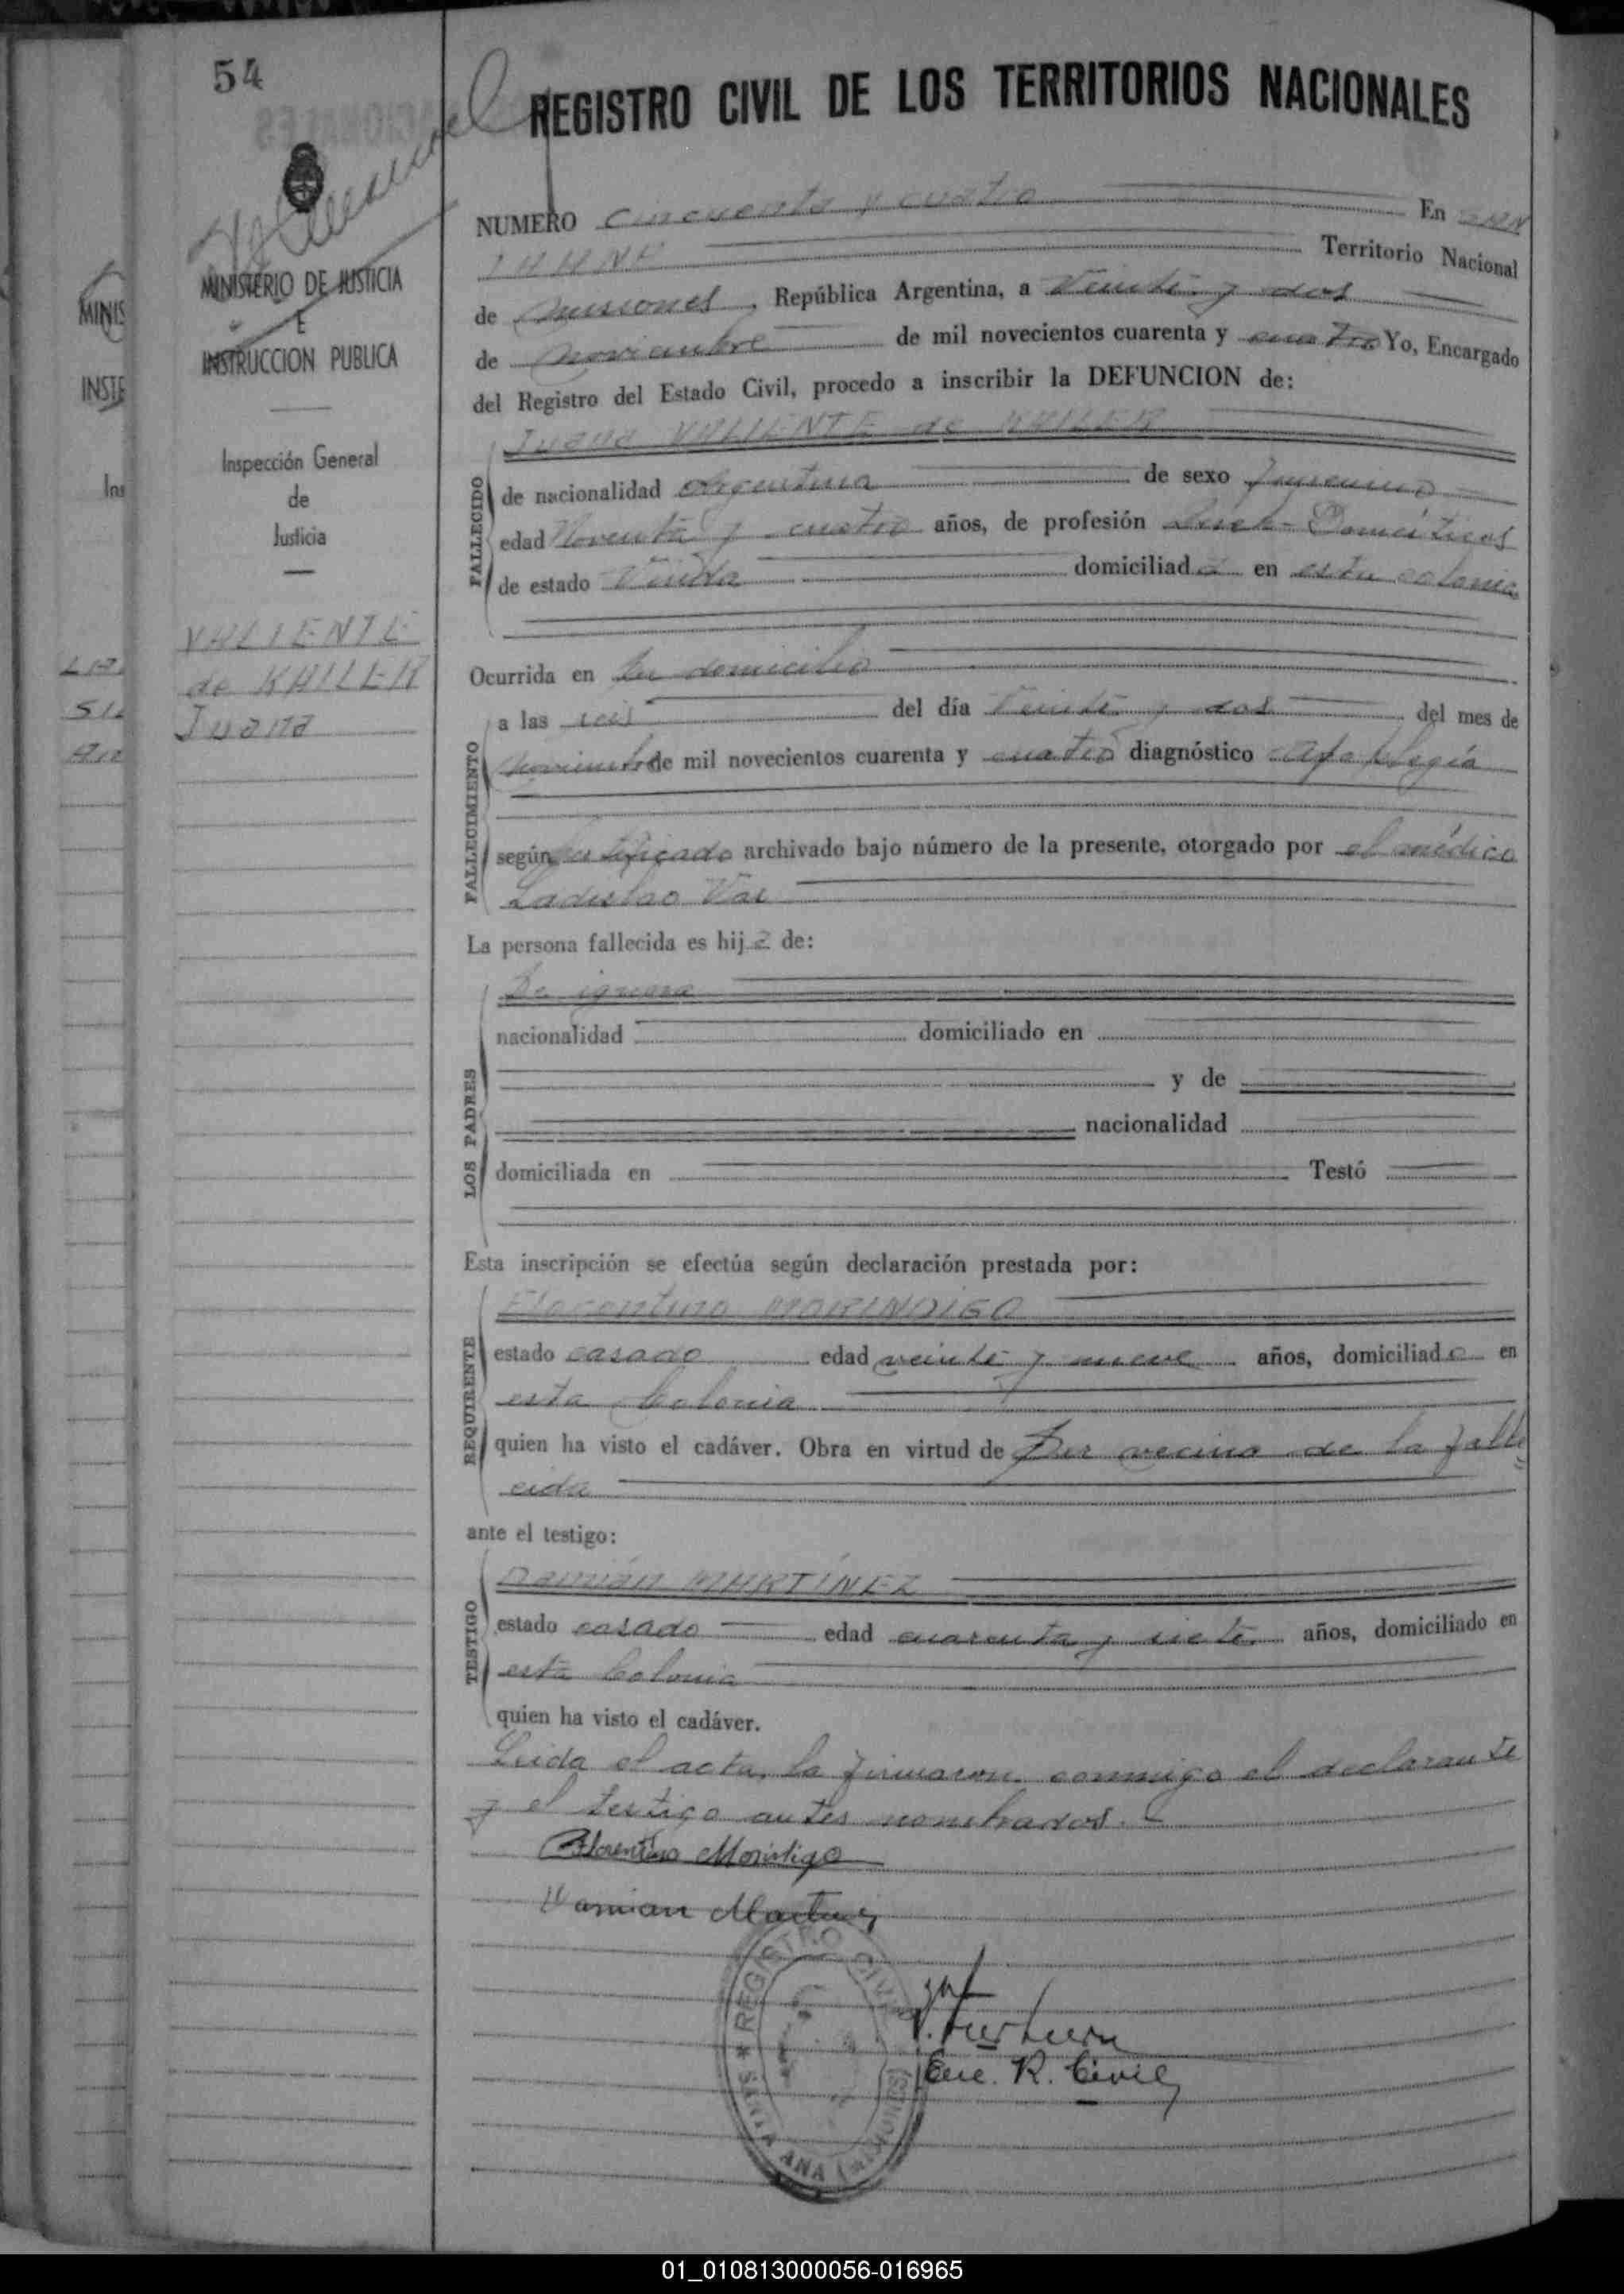 54
REGISTRO CIVIL DE LOS TERRITORIOS NACIONALES
MINISTERIO DE JUSTICIA
E
INSTRUCCION PUBLICA
Inspección General
de
Justicia
VALIENTE
de KAILER
Juana
NUMERO Cincuenta y cuatro En SAN
TA ANA Territorio Nacional
de Misiones, República Argentina, a Veinte y dos
de Noviembre de mil novecientos cuarenta y cuatro Yo, Encargado
del Registro del Estado Civil, procedo a inscribir la DEFUNCION de:
FALLECIDO
Juana VALIENTE de KAILER
de nacionalidad Argentina de sexo femenino
edad Noventa y cuatro años, de profesión Domésticos
de estado Viuda domiciliada en esta colonia
Ocurrida en Su domicilio
FALLECIMIENTO
a las seis del día Veinte y dos del mes de
Noviembre de mil novecientos cuarenta y cuatro diagnóstico Apoplegía
según certificado archivado bajo número de la presente, otorgado por el médico
Ladislao
La persona fallecida es hija de:
LOS PADRES
Se ignora
nacionalidad domiciliado en
y de
nacionalidad
domiciliada en Testó
Esta inscripción se efectúa según declaración prestada por:
REQUIRENTE
Florentino MORINDIGO
estado casado edad veinte y nueve años, domiciliado en
esta Colonia
quien ha visto el cadáver. Obra en virtud de Ser vecino de la falle
cida
ante el testigo:
TESTIGO
Damián MARTÍNEZ
estado casado edad cuarenta y siete años, domiciliado en
esta Colonia
quien ha visto el cadáver.
Leida el acta, la firmaron conmigo el declarante
y el testigo antes nombrados.-
Florentino Morinligo
Damian Martinez
REGISTRO CIVIL
Enc. R. Civil
* SANTA ANA (MISIONES)
01_010813000056-016965